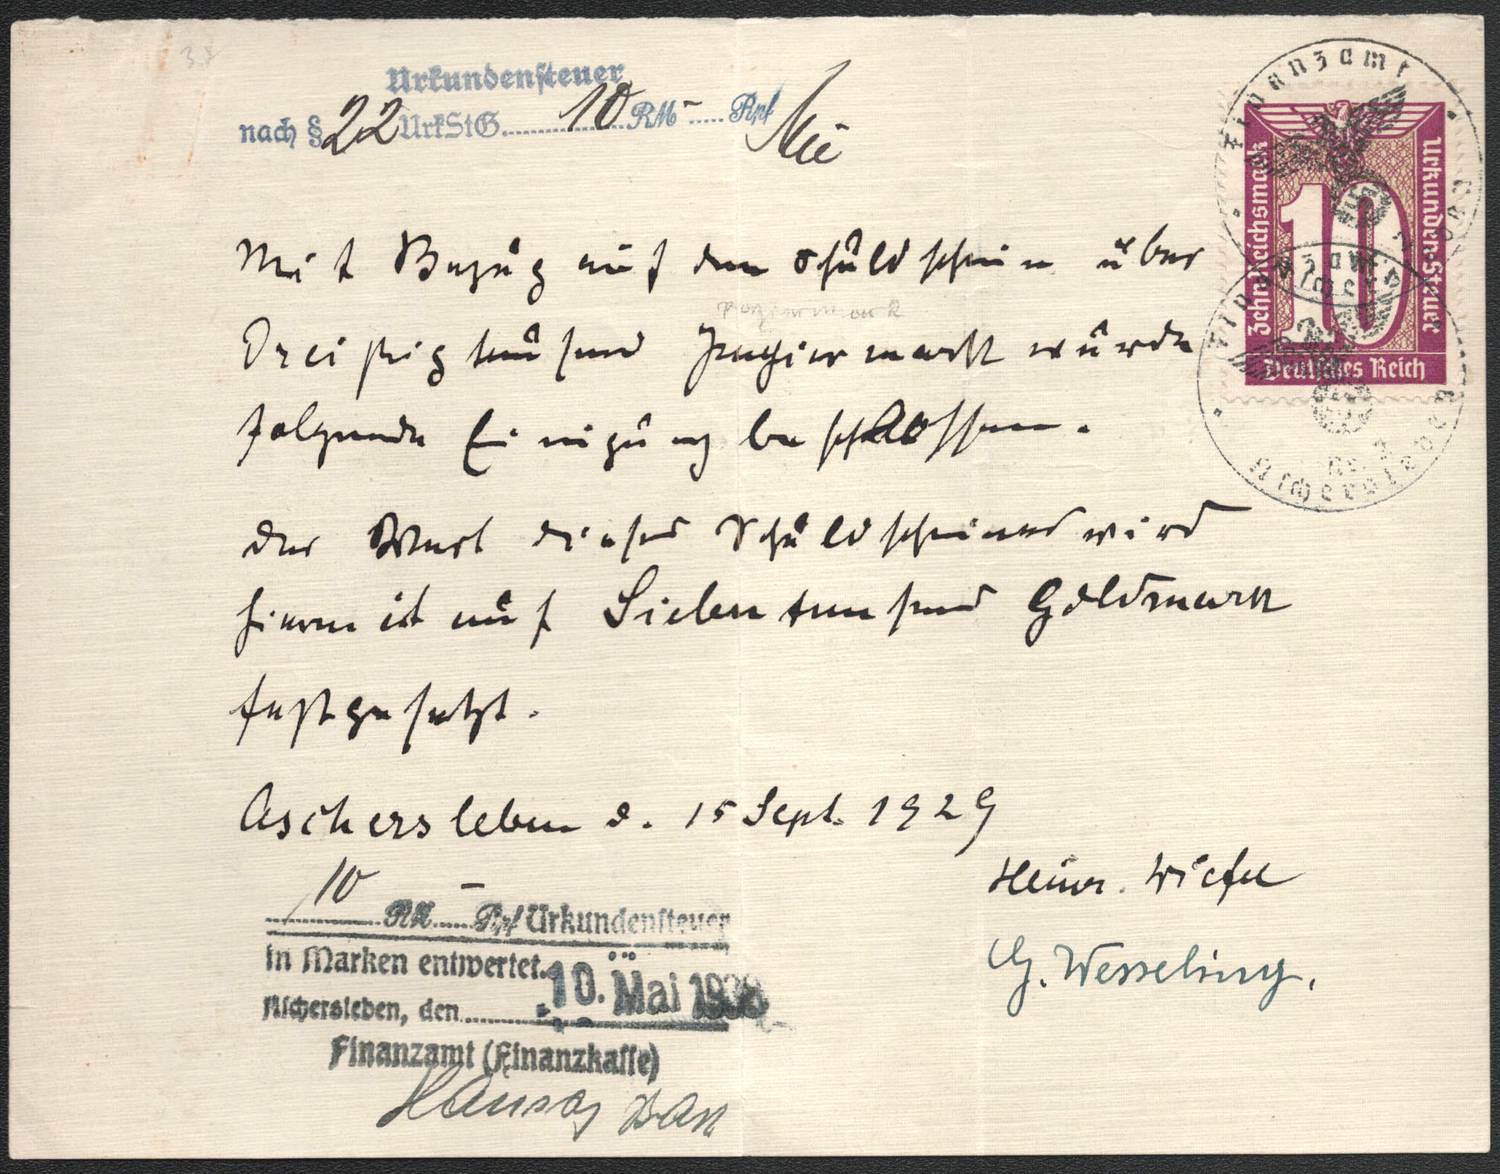 Urkundensteuer
nach § 22 UrkStG. 10 RM - Rpf
Mit Bezug auf den Schuldschein über
Papiermark
Dreißigtausend Papiermark wurde
folgende Einigung beschlossen.
Der Wert dieses Schuldscheines wird
hiermit auf Siebentausend Goldmark
festgesetzt.
Aschersleben d. 15 Sept. 1929
Heinr. Wiefel
G. Wesseling.
10 RM - Rpf Urkundensteuer
in Marken entwertet.
Aschersleben, den 10. Mai 1938
Finanzamt (Finanzkasse)
Finanzamt
Aschersleben
Nr. 2
Finanzamt
Aschersleben
Zehn Reichsmark
10
Urkunden-Steuer
Deutsches Reich